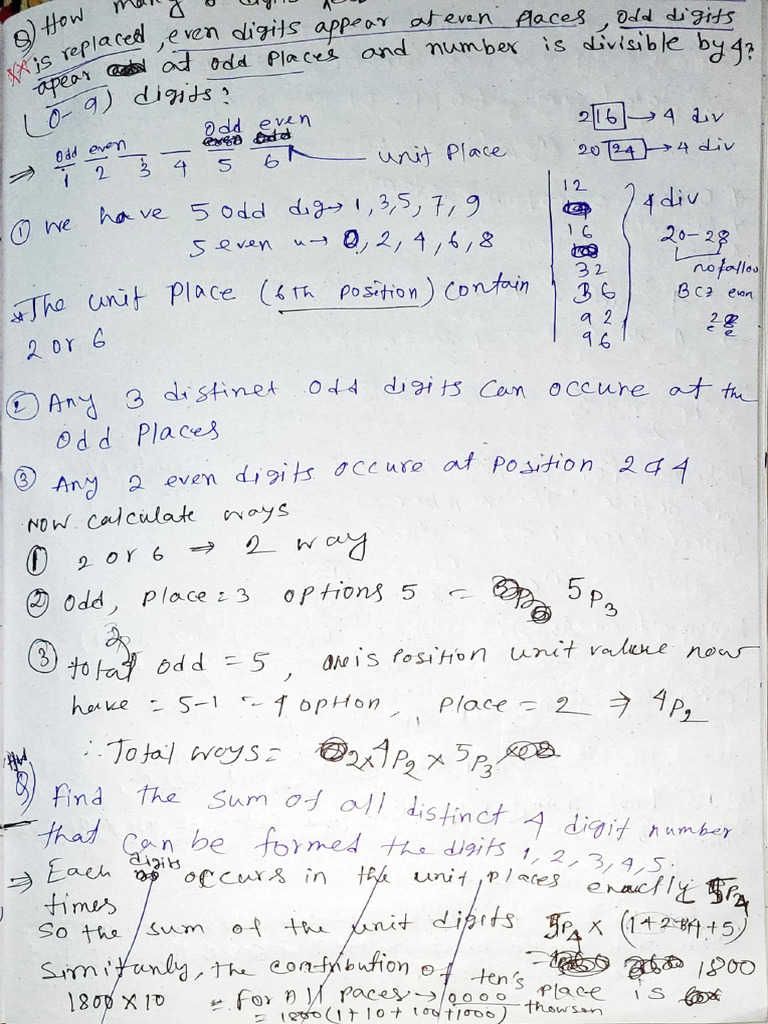 Q) How many 6 digits
** is replaced, even digits appear at even places, odd digits
apear at odd places and number is divisible by 4?
(0-9) digits?
odd even odd even
⇒ 1 2 3 4 5 6 unit place
216 → 4 div
2024 → 4 div
① we have 5 odd dig → 1, 3, 5, 7, 9
5 even u → 0, 2, 4, 6, 8
12
16
32
36
92
96
4 div
20-28
no follow
BCZ even
28
e e
* The unit place (6th position) contain
2 or 6
② Any 3 distinet odd digits can occure at the
odd places
③ Any 2 even digits occure at position 2 & 4
Now calculate ways
① 2 or 6 ⇒ 2 way
② odd, place = 3 options 5 = 5P3
③ total odd = 5, one is position unit value now
have = 5-1 = 4 option, place = 2 ⇒ 4P2
∴ Total ways = 2 x 4P2 x 5P3
Q) Find the sum of all distinct 4 digit number
that can be formed the digits 1, 2, 3, 4, 5.
⇒ Each digits occurs in the unit places exactly 5P4
times
so the sum of the unit digits 5P4 x (1+2+3+4+5)
= 1800
Simitarly, the contribution of ten's place is
1800 x 10 = for all paces → 0000 thowsen
= 1800 (1+10+100+1000)